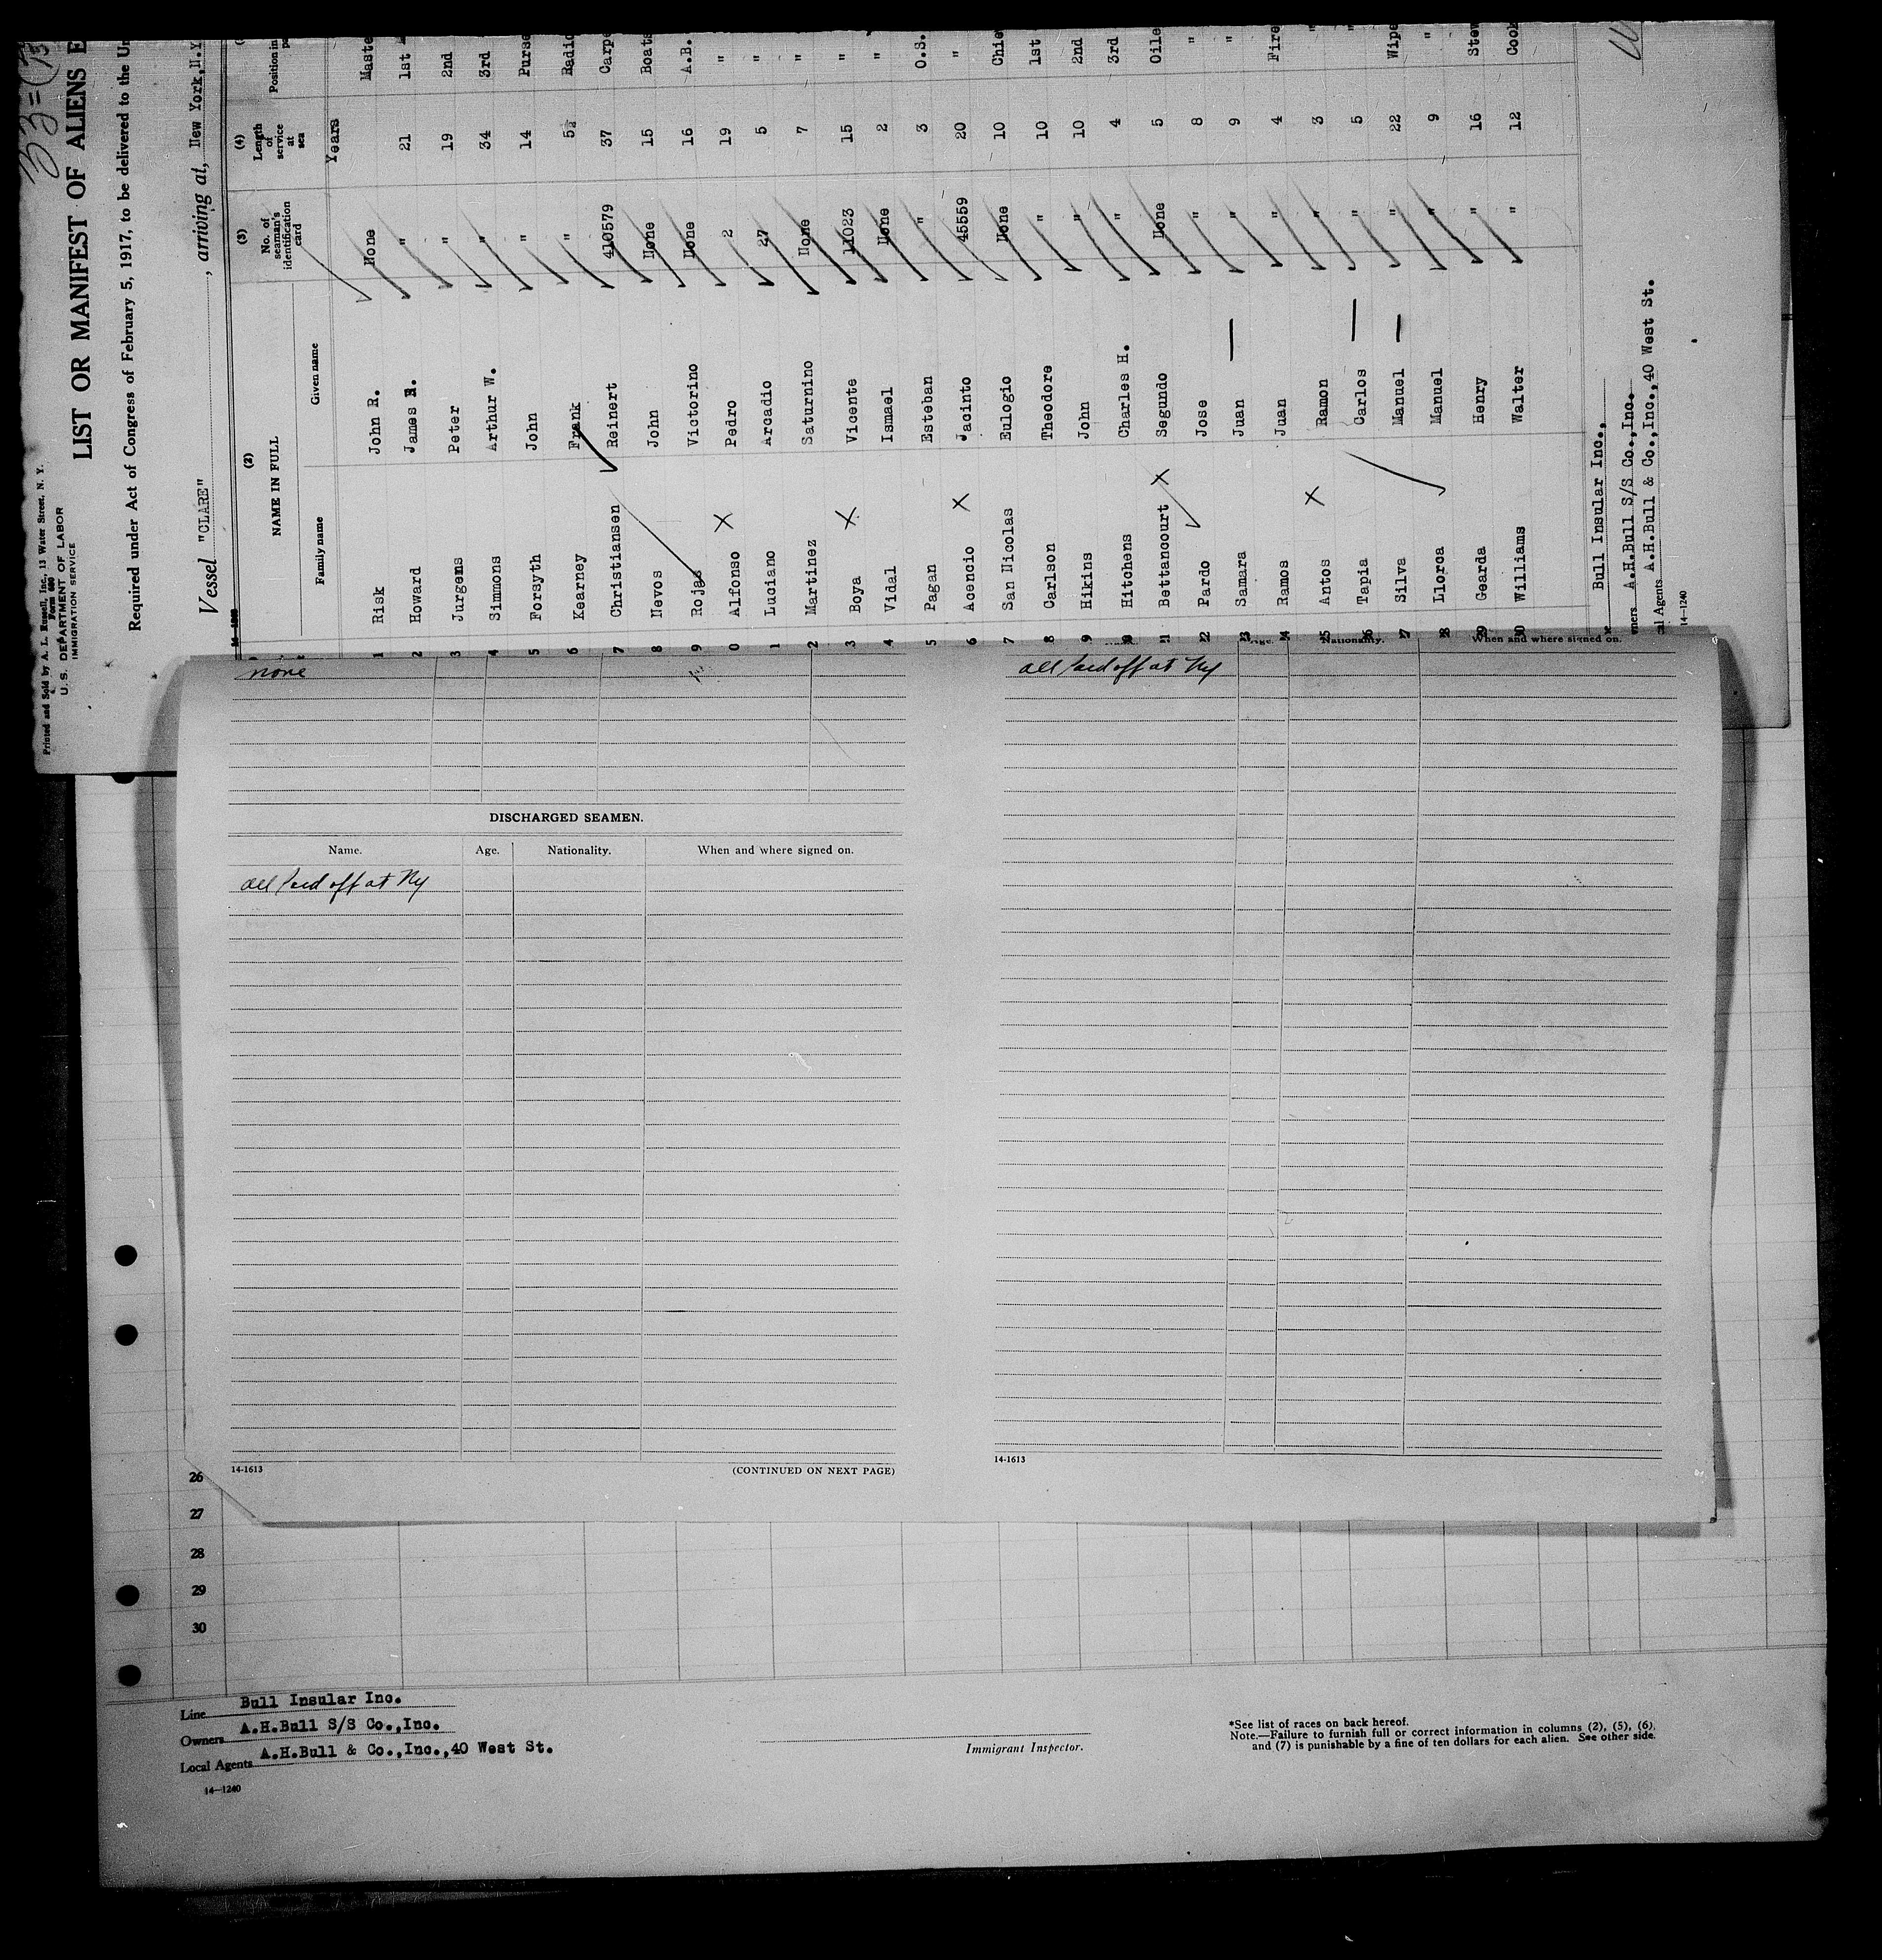 Printed and Sold by A. L. Russell, Inc., 13 Water Street, N. Y.
Form 680
U. S. DEPARTMENT OF LABOR
IMMIGRATION SERVICE
LIST OR MANIFEST OF ALIENS E
Required under Act of Congress of February 5, 1917, to be delivered to the Un
Vessel "CLARE" , arriving at, New York, N.Y
(2) (3) (4)
NAME IN FULL No. of seaman's identification card Length of service at sea Position in
Family name Given name Years
1 Risk John R. None Maste
2 Howard James R. " 21 1st
3 Jurgens Peter " 19 2nd
4 Simmons Arthur W. " 34 3rd
5 Forsyth John " 14 Purse
6 Kearney Frank " 5½ Radio
7 Christiansen Reinert 410579 37 Carpe
8 Nevos John None 15 Boats
9 Rojas Victorino None 16 A.B.
0 Alfonso Pedro 2 19 "
1 Luciano Arcadio 27 5 "
2 Martinez Saturnino None 7 "
3 Boya Vicente 11023 15 "
4 Vidal Ismael None 2 "
5 Pagan Esteban " 3 O.S.
6 Acencio Jacinto 45559 20 "
7 San Nicolas Eulogio None 10 Chie
8 Carlson Theodore " 10 1st
9 Hikins John " 10 2nd
10 Hitchens Charles H. " 4 3rd
11 Bettancourt Segundo None 5 Oile
12 Pardo Jose " 8 "
13 Samara Juan " 9 "
14 Ramos Juan " 4 Fire
15 Antos Ramon " 3 "
16 Tapia Carlos " 5 "
17 Silva Manuel " 22 Wipe
18 Llorca Manuel " 9 "
29 Gearda Henry " 16 Stew
30 Williams Walter " 12 Cook
Bull Insular Inc.,
wners A.H.Bull S/S Co.,Inc.
cal Agents A.H.Bull & Co.,Inc.,40 West St.
14-1240
none
DISCHARGED SEAMEN.
Name. Age. Nationality. When and where signed on.
all paid off at NY
14-1613 (CONTINUED ON NEXT PAGE)
Age. Nationality. When and where signed on.
all paid off at NY
14-1613
26
27
28
29
30
Line Bull Insular Inc.
Owners A.H.Bull S/S Co.,Inc.
Local Agents A.H.Bull & Co.,Inc.,40 West St.
14-1240
Immigrant Inspector.
*See list of races on back hereof.
Note.—Failure to furnish full or correct information in columns (2), (5), (6),
and (7) is punishable by a fine of ten dollars for each alien. See other side.